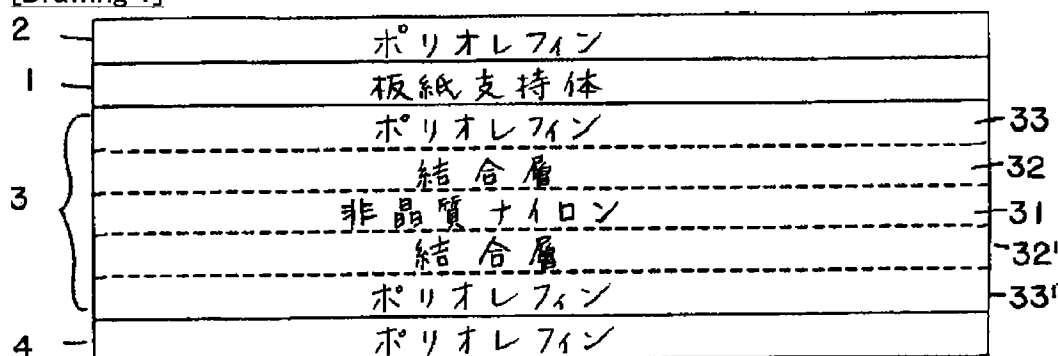 2 ポリオレフィン
1 板紙支持体
ポリオレフィン 33
結合層 32
3 非晶質ナイロン 31
結合層 32'
ポリオレフィン 33'
4 ポリオレフィン